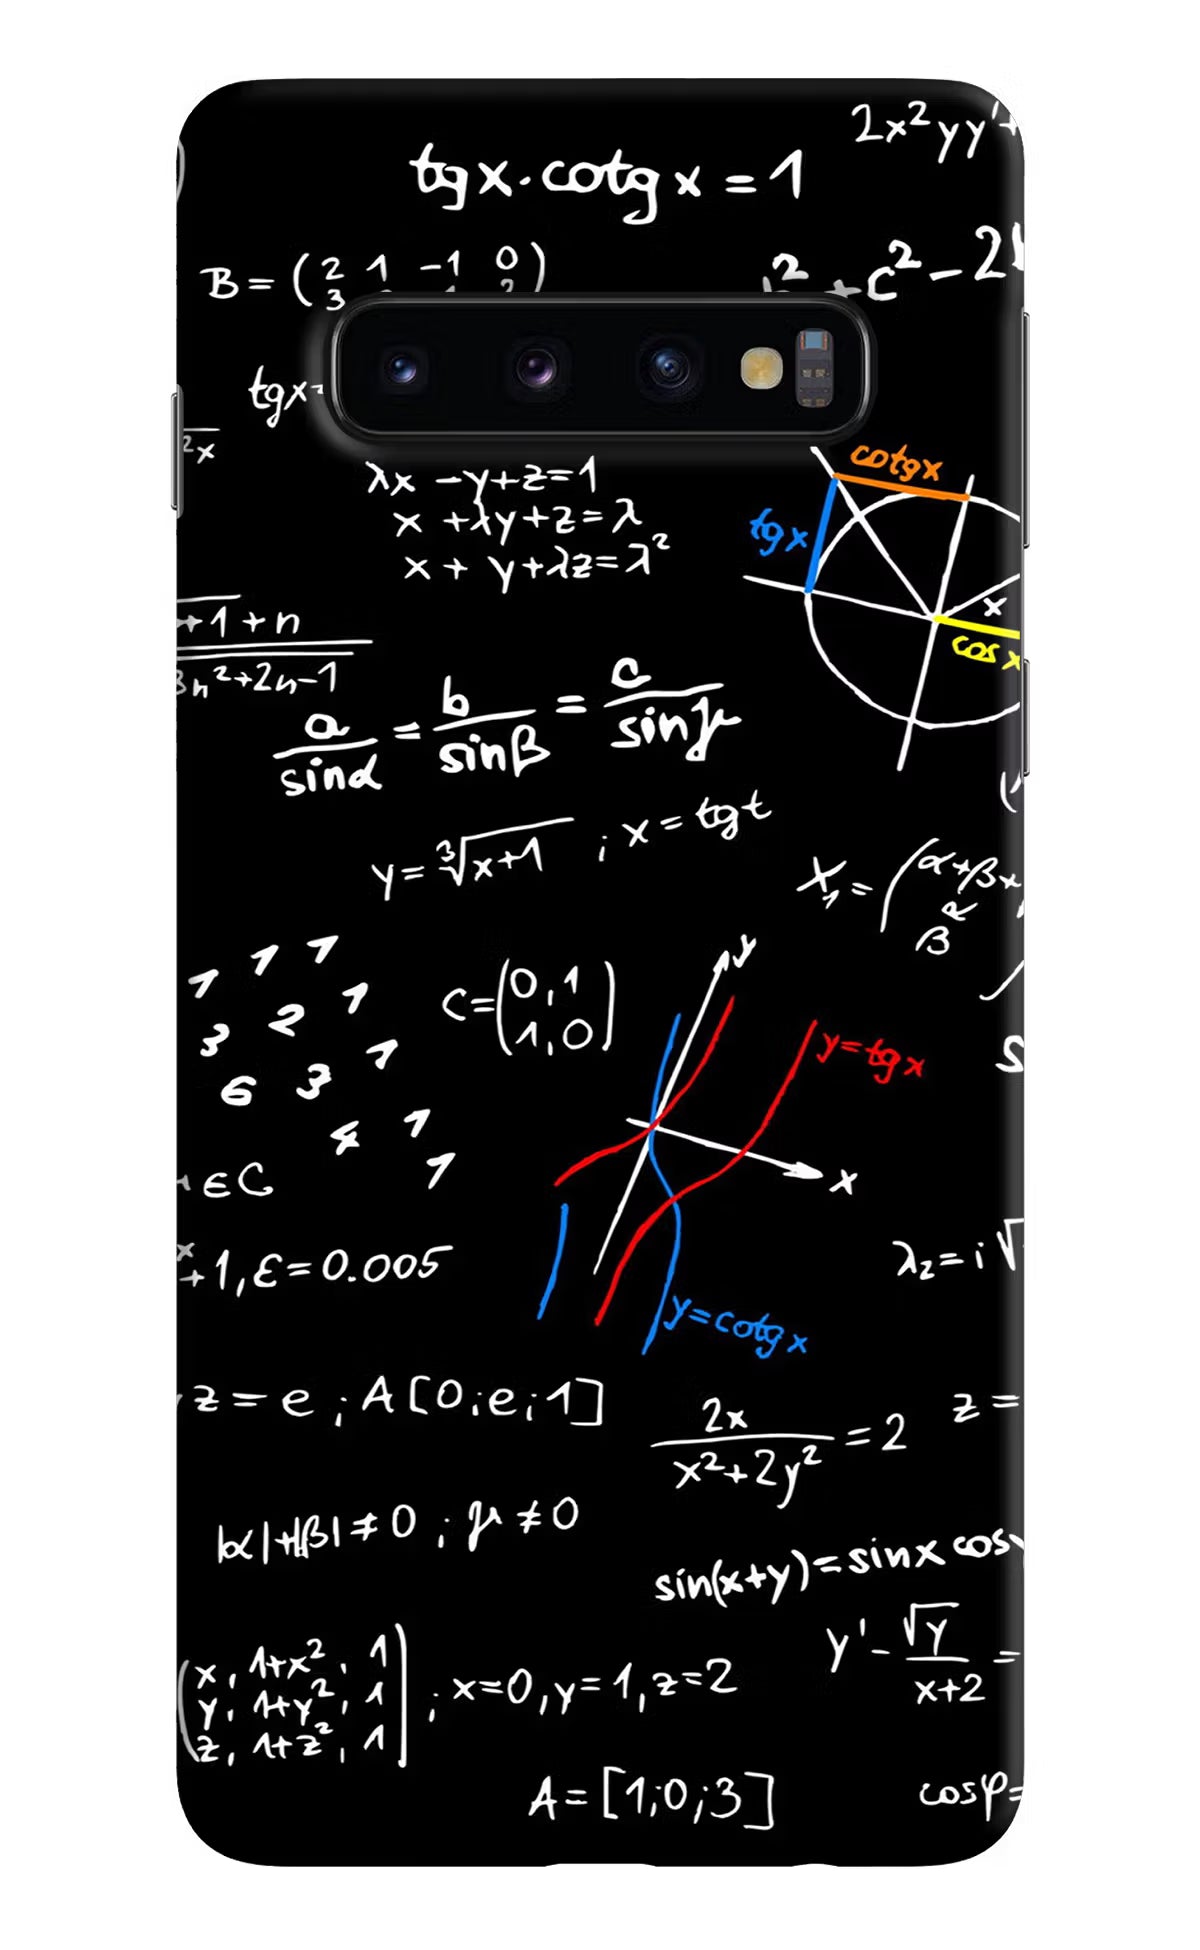 2x²yy'+
tgx·cotgx=1
B=(2 1 -1 0)
3
c²-2
tgx=
2x
cotgx
tgx
λx-y+z=1
x+λy+z=λ
x+y+λz=λ²
x
cosx
+1+n
3n²+2n-1
a/sinα=b/sinβ=c/sinγ
y=∛x+1 ; x=tgt
X₁=(α+β+
β R
1 1 1
3 2 1
6 3 1
4 1
1
C=(0,1
1,0)
y
y=tgx
x
∈C
x
+1,ε=0.005
λ₂=i√
y=cotgx
z=e ; A[0;e;1]
2x/x²+2y²=2
z=
|α|+|β|≠0 ; μ≠0
sin(x+y)=sinx cosy
y'-√y/x+2=
(x, 1+x², 1
y, 1+y², 1
z, 1+z², 1) ; x=0,y=1,z=2
A=[1;0;3]
cosφ=